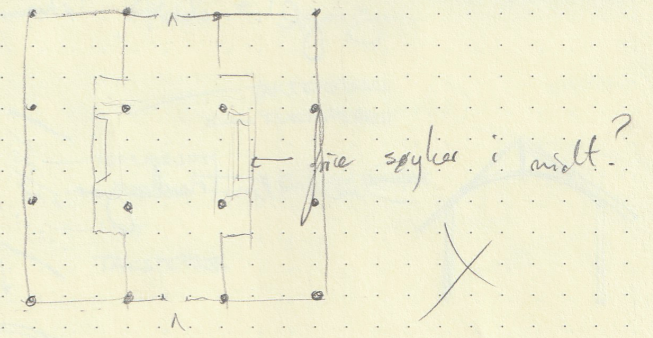 fire søyler i midt?